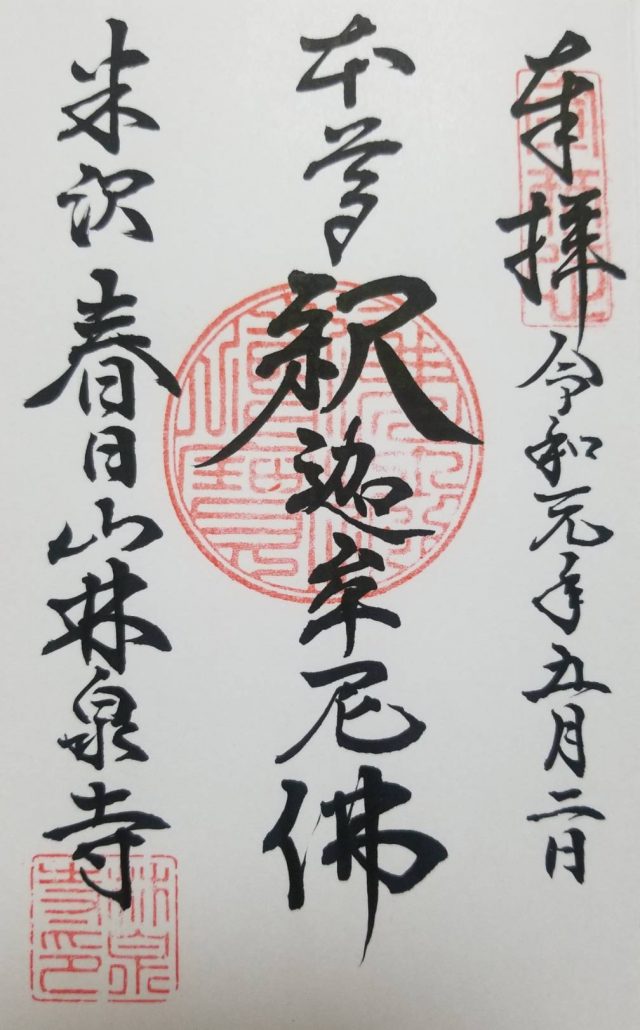 奉拝 令和元年五月二日
本尊 釈迦牟尼佛
米沢 春日山林泉寺
林泉寺印